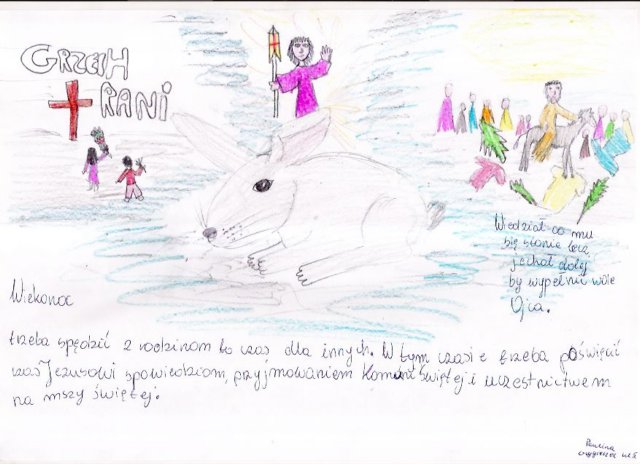 GRZECH
RANI
Wiedział co mu
się stanie lecz
jechał dalej
by wypełnić wole
Ojca.
Wiekanoc
trzeba spędzić z rodzinom to czas dla innych. W tym czasie trzeba poświęcić
czas Jezusowi spowiedziom, przyjmowaniem Komuni świętej i uczestnictwem
na mszy świętej.
Paulina